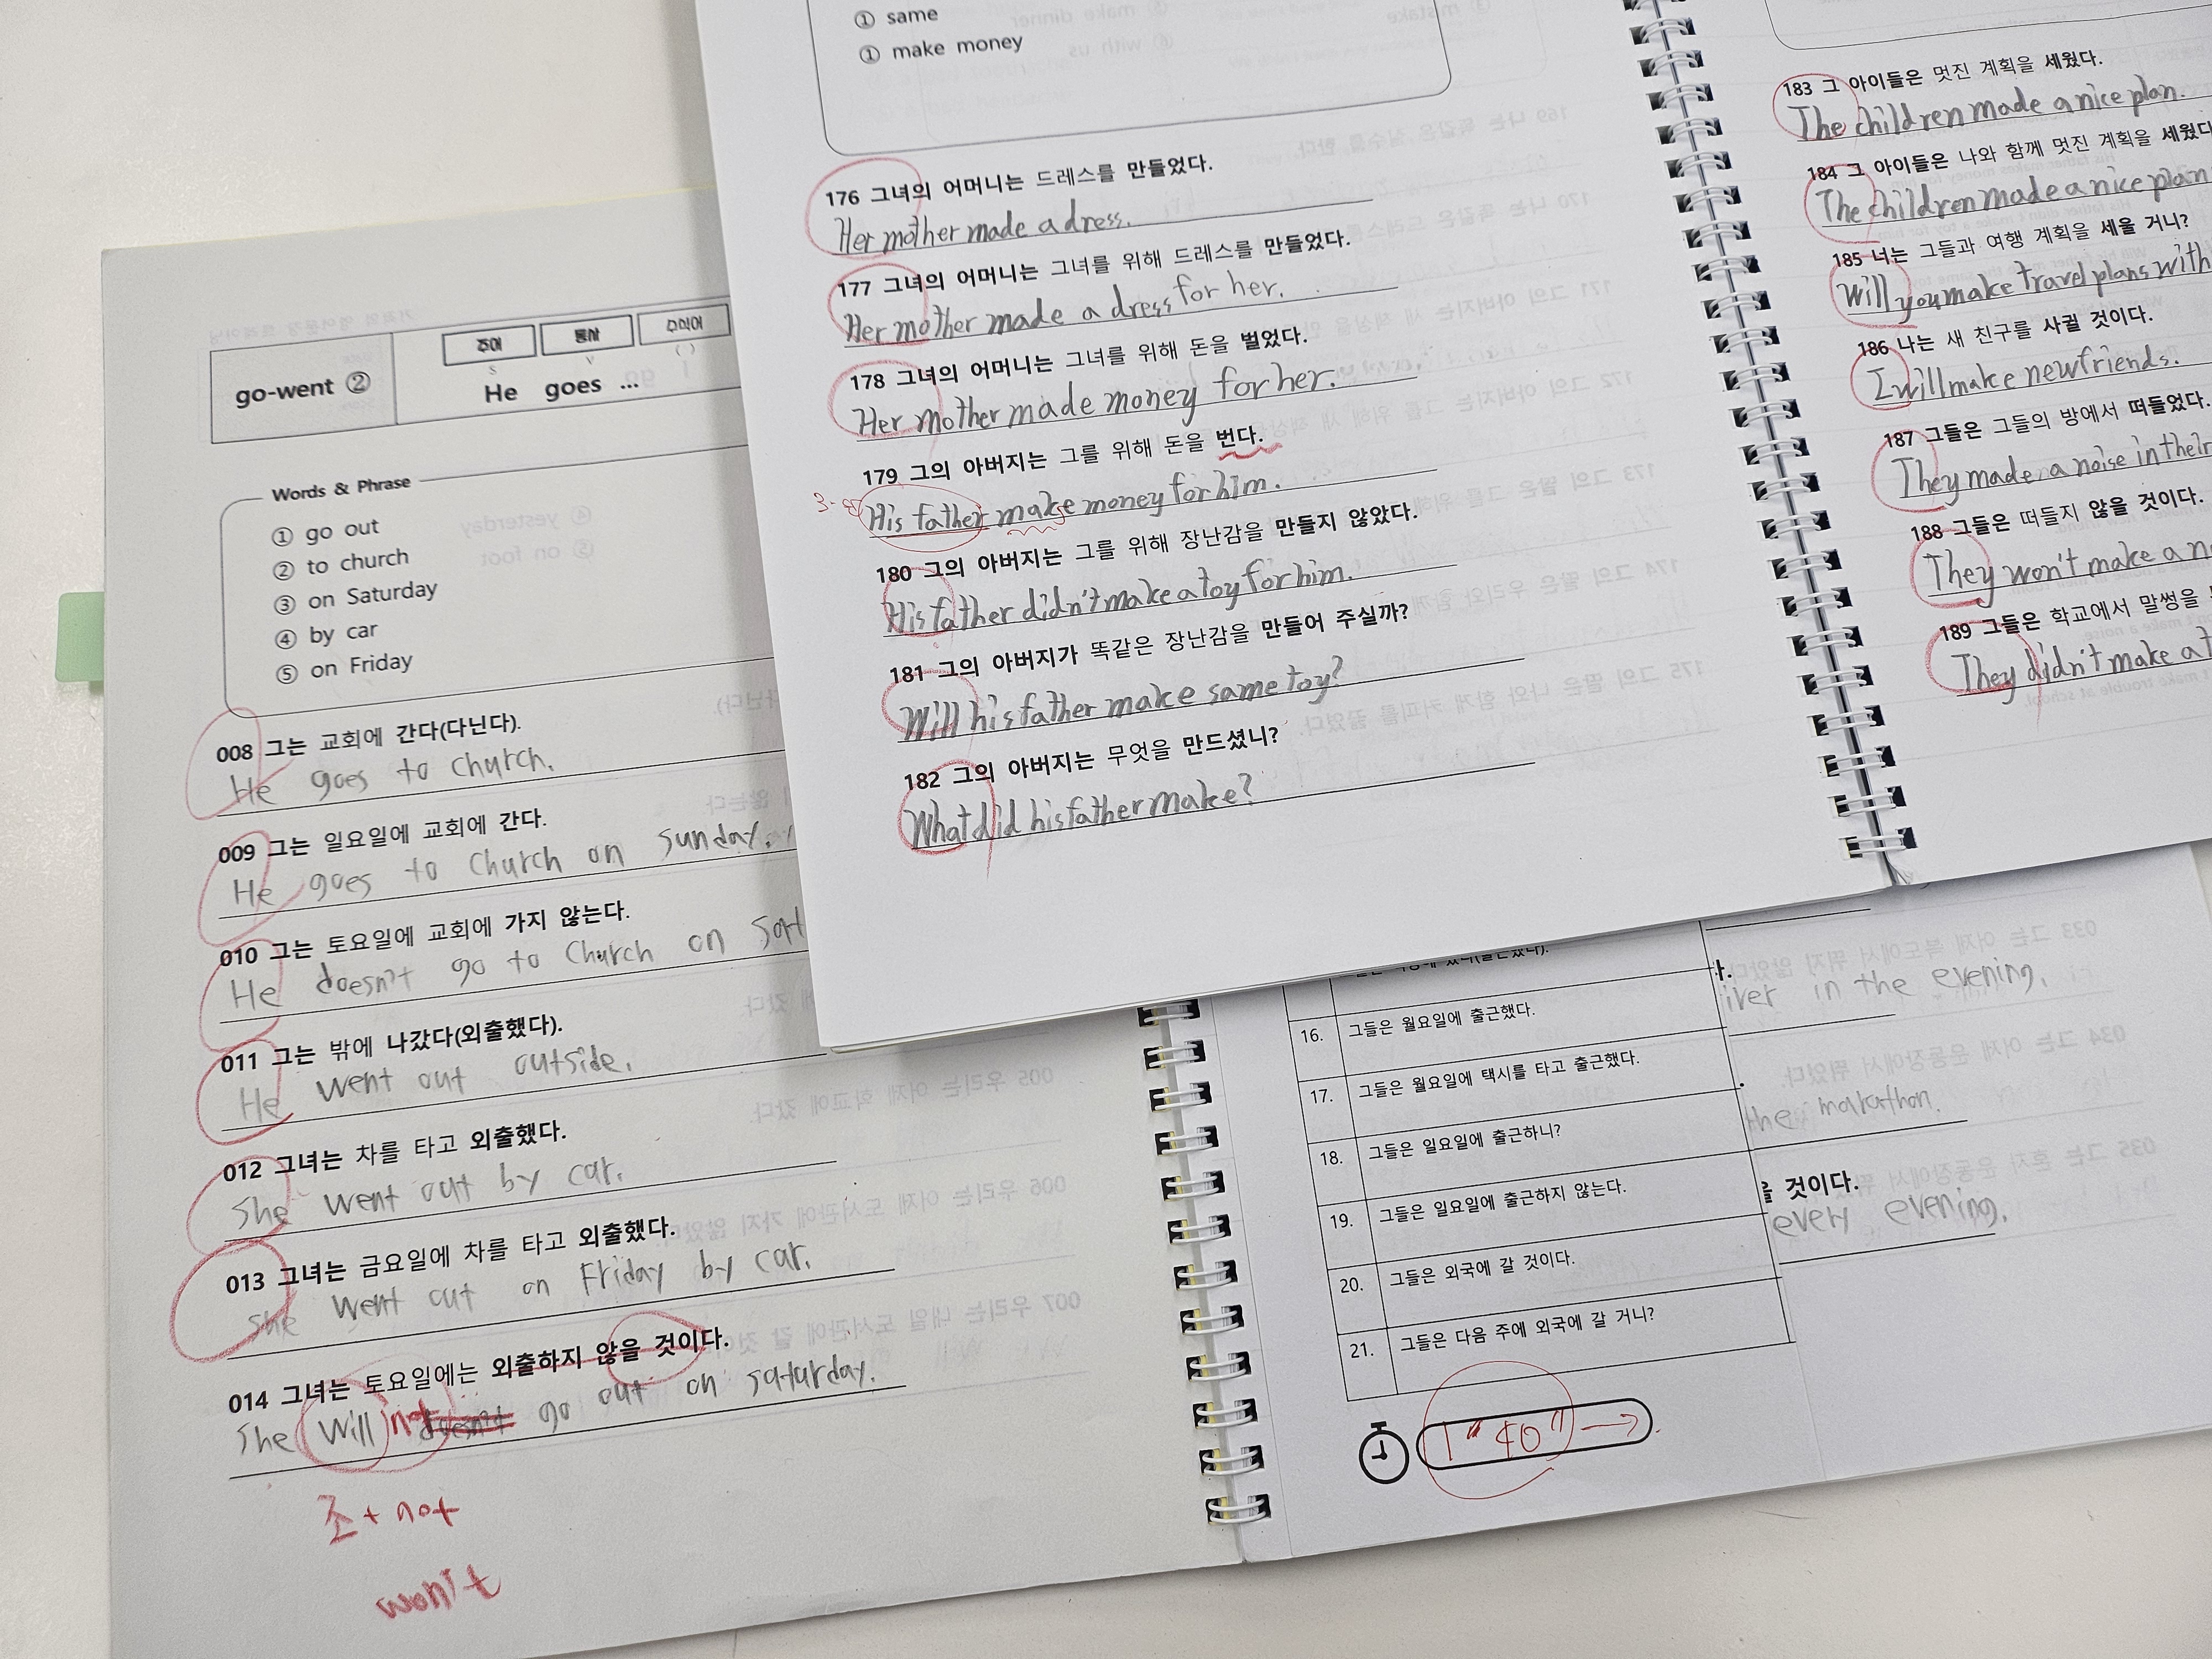 go-went ②
주어 동사 수식어
S V ( )
He goes ...
Words & Phrase
① go out
② to church
③ on Saturday
④ by car
⑤ on Friday
008 그는 교회에 간다(다닌다).
He goes to church.
009 그는 일요일에 교회에 간다.
He goes to church on sunday.
010 그는 토요일에 교회에 가지 않는다.
He doesn't go to church on
011 그는 밖에 나갔다(외출했다).
He went out outside.
012 그녀는 차를 타고 외출했다.
She went out by car.
013 그녀는 금요일에 차를 타고 외출했다.
She went out on Friday by car.
014 그녀는 토요일에는 외출하지 않을 것이다.
She will not doesn't go out on saturday.
조 + not
won't
① same
① make money
176 그녀의 어머니는 드레스를 만들었다.
Her mother made a dress.
177 그녀의 어머니는 그녀를 위해 드레스를 만들었다.
Her mother made a dress for her.
178 그녀의 어머니는 그녀를 위해 돈을 벌었다.
Her mother made money for her.
179 그의 아버지는 그를 위해 돈을 번다.
His father make money for him.
180 그의 아버지는 그를 위해 장난감을 만들지 않았다.
His father didn't make a toy for him.
181 그의 아버지가 똑같은 장난감을 만들어 주실까?
Will his father make same toy?
182 그의 아버지는 무엇을 만드셨니?
What did his father make?
183 그 아이들은 멋진 계획을 세웠다.
The children made a nice plan.
184 그 아이들은 나와 함께 멋진 계획을 세웠다
The children made a nice plan
185 너는 그들과 여행 계획을 세울 거니?
Will you make travel plans with
186 나는 새 친구를 사귈 것이다.
I will make new friends.
187 그들은 그들의 방에서 떠들었다.
They made a noise in their
188 그들은 떠들지 않을 것이다.
They won't make a
189 그들은 학교에서 말썽을
They didn't make a
16. 그들은 월요일에 출근했다.
17. 그들은 월요일에 택시를 타고 출근했다.
18. 그들은 일요일에 출근하니?
19. 그들은 일요일에 출근하지 않는다.
20. 그들은 외국에 갈 것이다.
21. 그들은 다음 주에 외국에 갈 거니?
1" 40" →
in the evening.
the marathon.
것이다.
every evening.